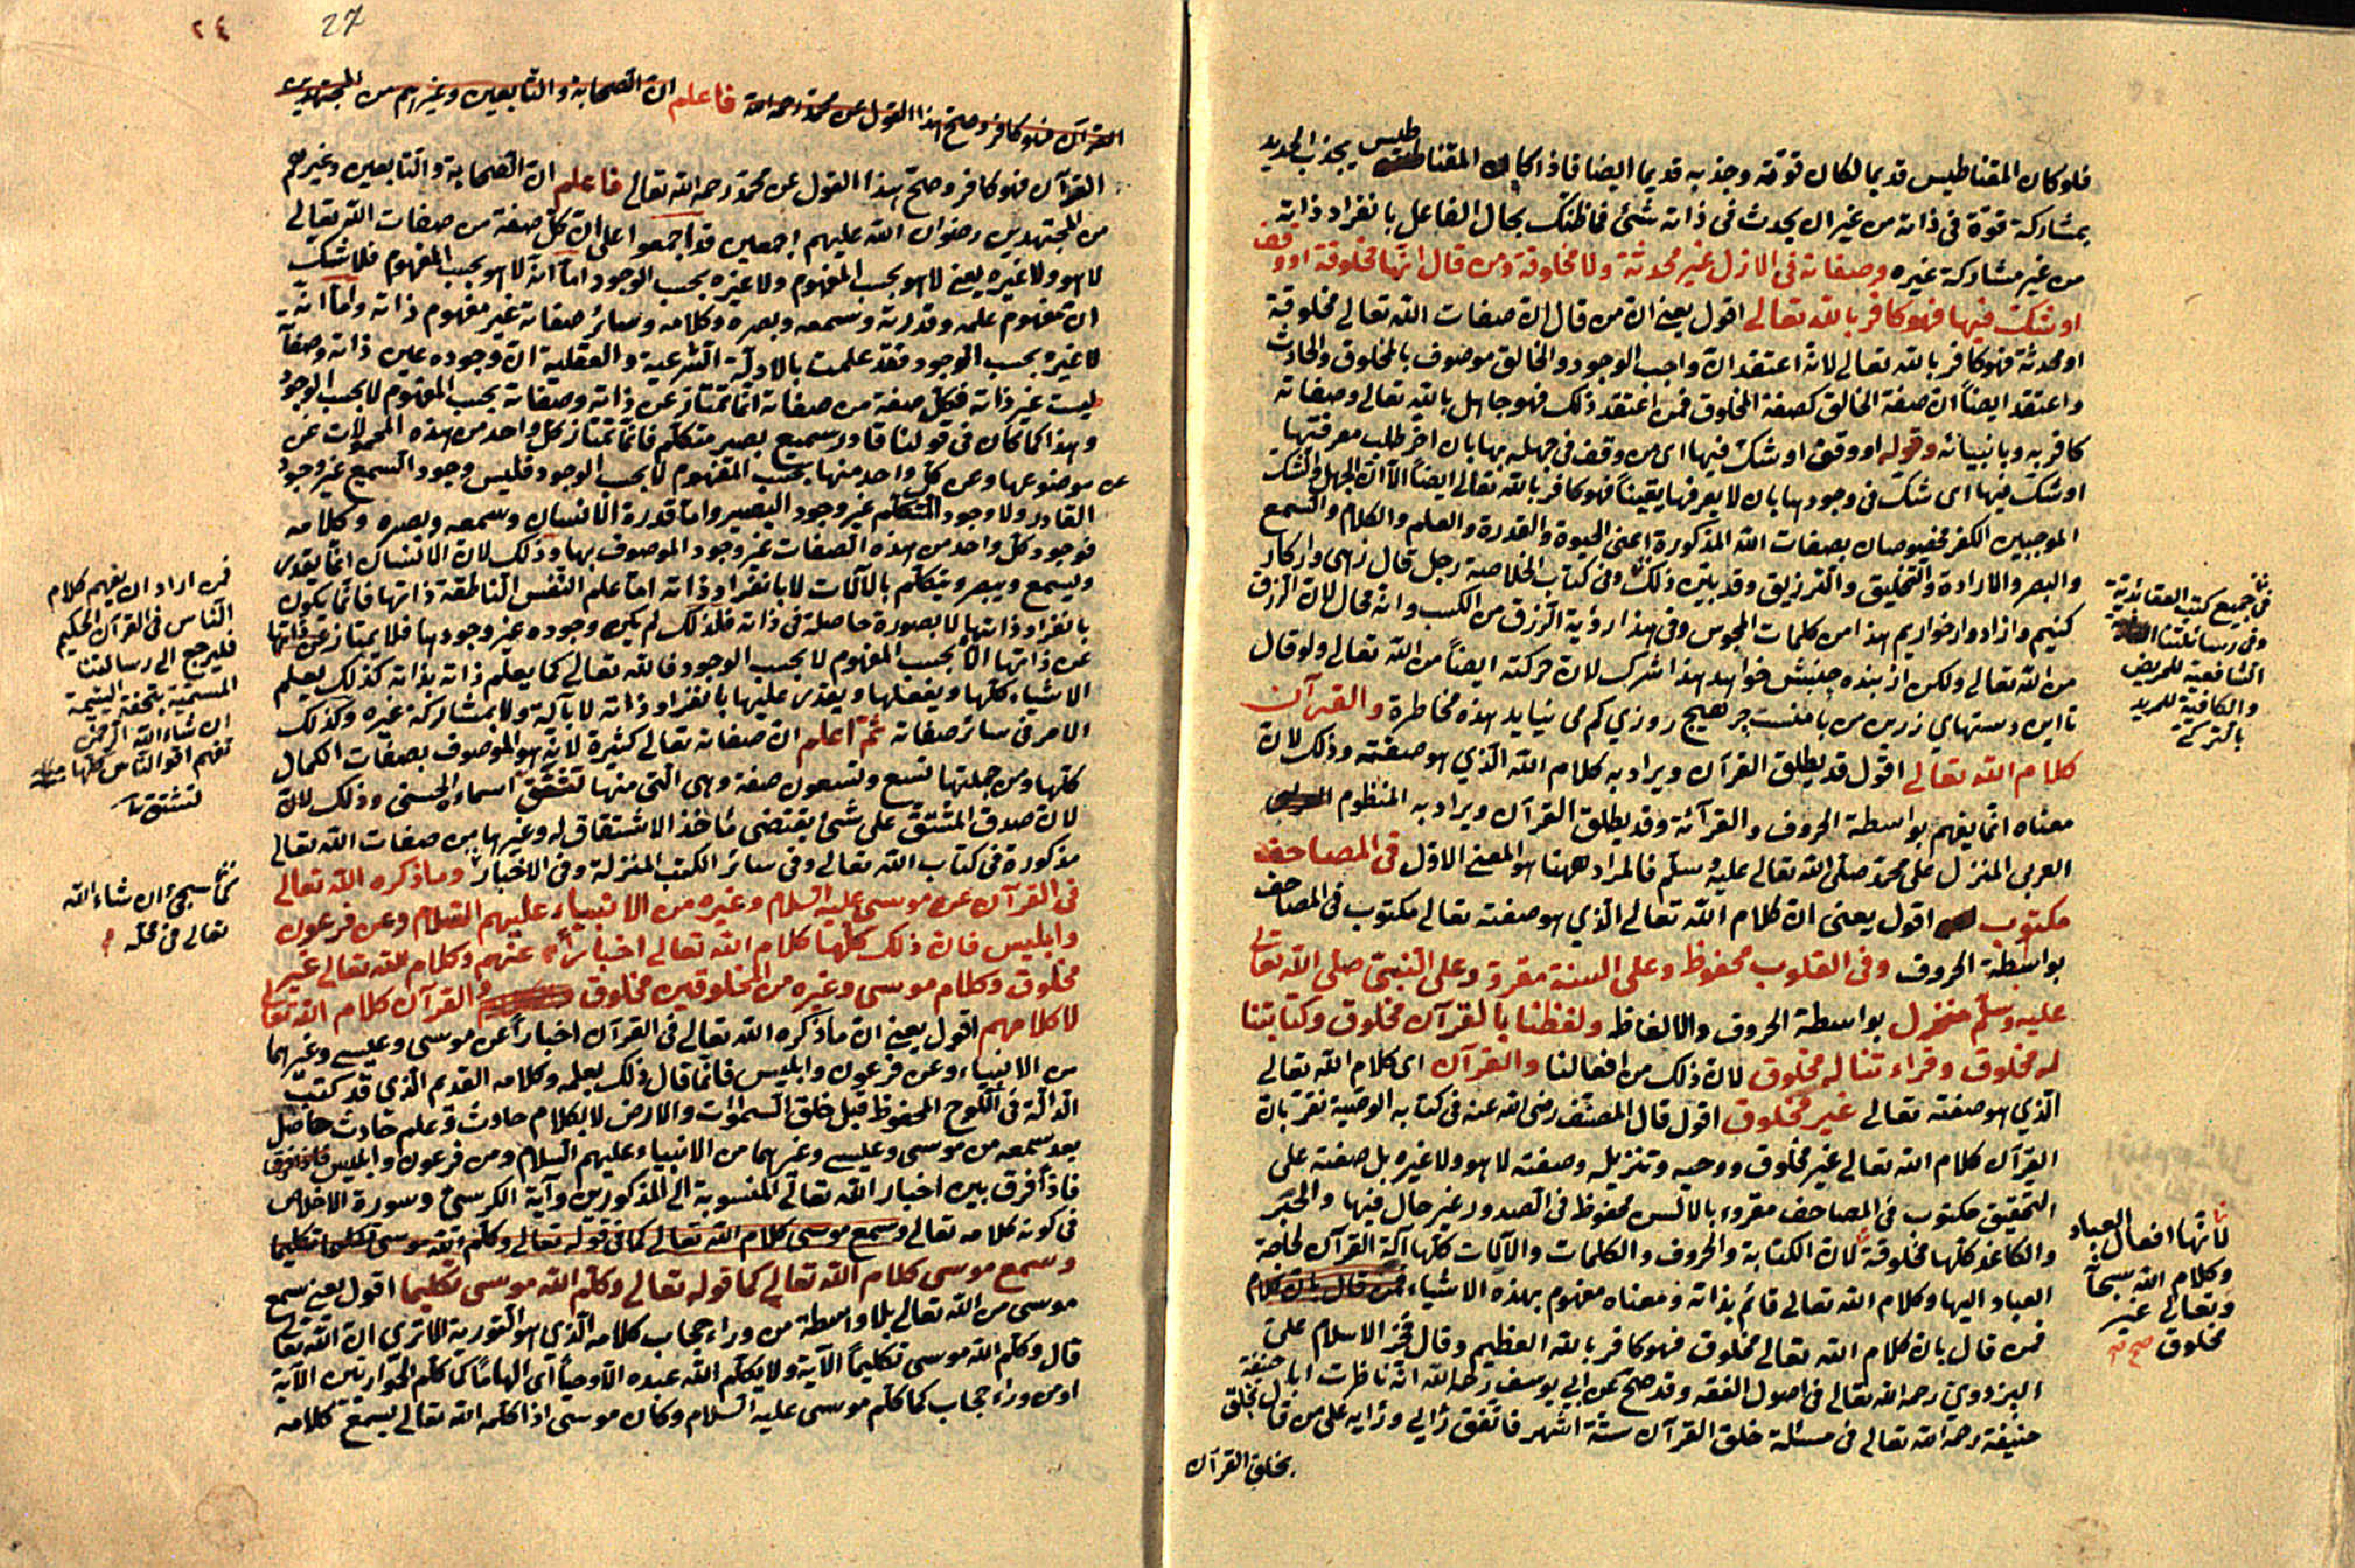 فلو كان المقناطيس قديما لكان قوته وجذبه قديما ايضا فاذا كان المقناطيس يجذب الحديد
بمشاركة قوة فى ذاته من غير ان يحدث فى ذاته شئ فما ظنك بحال الفاعل بانفراد ذاته
من غير مشاركة غيره وصفاته فى الازل غير محدثة ولا مخلوقة ومن قال انها مخلوقة او وقف
او شك فيها فهو كافر بالله تعالى اقول يعنى ان من قال ان صفات الله تعالى مخلوقة
او محدثة فهو كافر بالله تعالى لانه اعتقد ان واجب الوجود والخالق موصوف بالمخلوق والحادث
واعتقد ايضاً ان صفة الخالق كصفة المخلوق فمن اعتقد ذلك فهو جاهل بالله تعالى وصفاته
كافر به وبانبيائه وقوله او وقف او شك فيها اى من وقف فى جهله بها بان اخر طلب معرفتها
او شك فيها اى شك فى وجودها بان لا يعرفها يقيناً فهو كافر بالله تعالى ايضاً الا ان الجهل والشك
الموجبين الكفر مخصوصان بصفات الله المذكورة اعنى الحيوة والقدرة والعلم والكلام والسمع
والبصر والارادة والتخليق والترزيق وقد بيّن ذلك وفى كتاب الخلاصة رجل قال زهى واركار
كنيم وازاد وارخواريم هذا من كلمات المجوس وفى هذا رؤية الرزق من الكسب وانه محال لان الرزق
من الله تعالى ولكن از بنده جنبش خواهد هذا شرك لان حركته ايضاً من الله تعالى ولو قال
تا اين دستهاي زرين من با منست جر هيچ روزي كم مى نيايد هذه مخاطرة والقرآن
كلام الله تعالى اقول قد يطلق القرآن ويراد به كلام الله الذي هو صفته وذلك لان
معناه انما يفهم بواسطة الحروف والقرائة وقد يطلق القرآن ويراد به المنظوم
العربى المنزل على محمد صلى الله تعالى عليه وسلم فالمراد ههنا هو المعنى الاول فى المصاحف
مكتوب اقول يعنى ان كلام الله تعالى الذي هو صفته تعالى مكتوب فى المصاحف
بواسطة الحروف وفى القلوب محفوظ وعلى السنة مقرو وعلى النبى صلى الله تعالى
عليه وسلم منزل بواسطة الحروف والالفاظ ولفظنا بالقرآن مخلوق وكتابتنا
له مخلوق وقراءتنا له مخلوق لان ذلك من افعالنا والقرآن اى كلام الله تعالى
الذي هو صفته تعالى غير مخلوق اقول قال المصنف رضى الله عنه فى كتابه الوصية نقر بان
القرآن كلام الله تعالى غير مخلوق ووحيه وتنزيله وصفته لا هو ولا غيره بل صفته على
التحقيق مكتوب فى المصاحف مقروء بالالسن محفوظ فى الصدور غير حال فيها والحبر
والكاغذ كلها مخلوقة لان الكتابة والحروف والكلمات والآيات كلها آلة القرآن لحاجة
العباد اليها وكلام الله تعالى قائم بذاته ومعناه مفهوم بهذه الاشياء فمن قال بان كلام
فمن قال بان كلام الله تعالى مخلوق فهو كافر بالله العظيم وقال فخر الاسلام على
البزدوي رحمه الله تعالى فى اصول الفقه وقد صح عن ابي يوسف رحمه الله انه ناظرت ابا حنيفة
حنيفة رحمه الله تعالى فى مسئلة خلق القرآن ستة اشهر فاتفق رأيي ورأيه على من قال بخلق
بخلق القرآن
فى جميع كتب العقائدية
وفى رسائلتنا
الشافعية للمريض
والكافية للمريد
بالتركى
لانها افعال العباد
وكلام الله سبحانه
وتعالى غير
مخلوق صح
27
٢٤
القرآن فهو كافر وصح هذا القول عن محمد رحمه الله فاعلم ان الصحابة والتابعين وغيرهم من المجتهدين
القرآن فهو كافر وصح هذا القول عن محمد رحمه الله تعالى فاعلم ان الصحابة والتابعين وغيرهم
من المجتهدين رضوان الله عليهم اجمعين قد اجمعوا على ان كل صفة من صفات الله تعالى
لا هو ولا غيره يعنى لا هو بحسب المفهوم ولا غيره بحسب الوجود اما انه لا هو بحسب المفهوم فلا شك
ان مفهوم علمه وقدرته وسمعه وبصره وكلامه وسائر صفاته غير مفهوم ذاته واما انه
لا غيره بحسب الوجود فقد علمت بالادلة الشرعية والعقلية ان وجوده عين ذاته وصفاته
ليست غير ذاته فكل صفة من صفاته انما تمتاز عن ذاته وصفاته بحسب المفهوم لا بحسب الوجود
وهذا كما كان فى قولنا قادر سميع بصير متكلم فانما تمتاز كل واحد من هذه المحمولات عن
عن موضوعها وعن كل واحد منها بحسب المفهوم لا بحسب الوجود فليس وجود السميع غير وجود
القادر ولا وجود المتكلم غير وجود البصير واما قدرة الانسان وسمعه وبصره وكلامه
فوجود كل واحد من هذه الصفات غير وجود الموصوف بها وذلك لان الانسان انما يقدر
ويسمع ويبصر ويتكلم بالآلات لا بانفراد ذاته اما علم النفس الناطقة ذاتها فانما يكون
بانفراد ذاتها لا بصورة حاصلة فى ذاته فلذلك لم يكن وجوده غير وجودها فلا يمتاز عن ذاتها
عن ذاتها الا بحسب المفهوم لا بحسب الوجود فالله تعالى كما يعلم ذاته بذاته كذلك يعلم
الاشياء كلها ويفعلها ويقدر عليها بانفراد ذاته لا بآلة ولا بمشاركة غيره وكذلك
الامر فى سائر صفاته ثم اعلم ان صفاته تعالى كثيرة لانه هو الموصوف بصفات الكمال
كلها ومن جملتها تسع وتسعون صفة وهى التى منها تشتق اسماءه الحسنى وذلك لان
لان صدق المشتق على شئ يقتضى مأخذ الاشتقاق له وغيرها من صفات الله تعالى
مذكورة فى كتاب الله تعالى وفى سائر الكتب المنزلة وفى الاخبار وما ذكره الله تعالى
فى القرآن عن موسى عليه السلام وغيره من الانبياء عليهم السلام وعن فرعون
وابليس فان ذلك كلها كلام الله تعالى اخباراً عنهم وكلام الله تعالى غير
مخلوق وكلام موسى وغيره من المخلوقين مخلوق والقرآن كلام الله تعالى
لا كلامهم اقول يعنى ان ما ذكره الله تعالى فى القرآن اخباراً عن موسى وعيسى وغيرهما
من الانبياء وعن فرعون وابليس فانما قال ذلك بعلمه وكلامه القديم الذي قد كتب
الدالة فى اللوح المحفوظ قبل خلق السموات والارض لا بكلام حادث وعلم حادث حاصل
بعد سمعه من موسى وعيسى وغيرهما من الانبياء عليهم السلام ومن فرعون وابليس
فاذاً فرق بين اخبار الله تعالى المنسوبة الى المذكورين وآية الكرسى وسورة الاخلاص
فى كونه كلامه تعالى وسمع موسى كلام الله تعالى كما فى قوله تعالى وكلم الله موسى تكليما
وسمع موسى كلام الله تعالى كما قوله تعالى وكلم الله موسى تكليما اقول يعنى سمع
موسى من الله تعالى بلا واسطة من وراء حجاب كلامه الذي هو التورية الا ترى ان الله تعالى
قال وكلم الله موسى تكليماً الآية ولا يكلم الله عبده الا وحياً اى الهاماً كما كلم الحواريين الآية
او من وراء حجاب كما كلم موسى عليه السلام وكان موسى اذا كلمه الله تعالى يسمع كلامه
فمن اراد ان يفهم كلام
الناس فى القرآن الحكيم
فليرجع الى رسالتنا
المسمية بتحفة اليتيمة
ان شاء الله الرحمن
تفهم اقوال الناس كلها
لتشتق
كما سيجئ ان شاء الله
تعالى فى محله